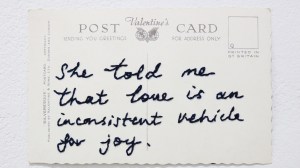 Valentine's
POST CARD
FOR ADDRESS ONLY
PRINTED IN
GT. BRITAIN
She told me
that love is an
inconsistent vehicle
for joy.